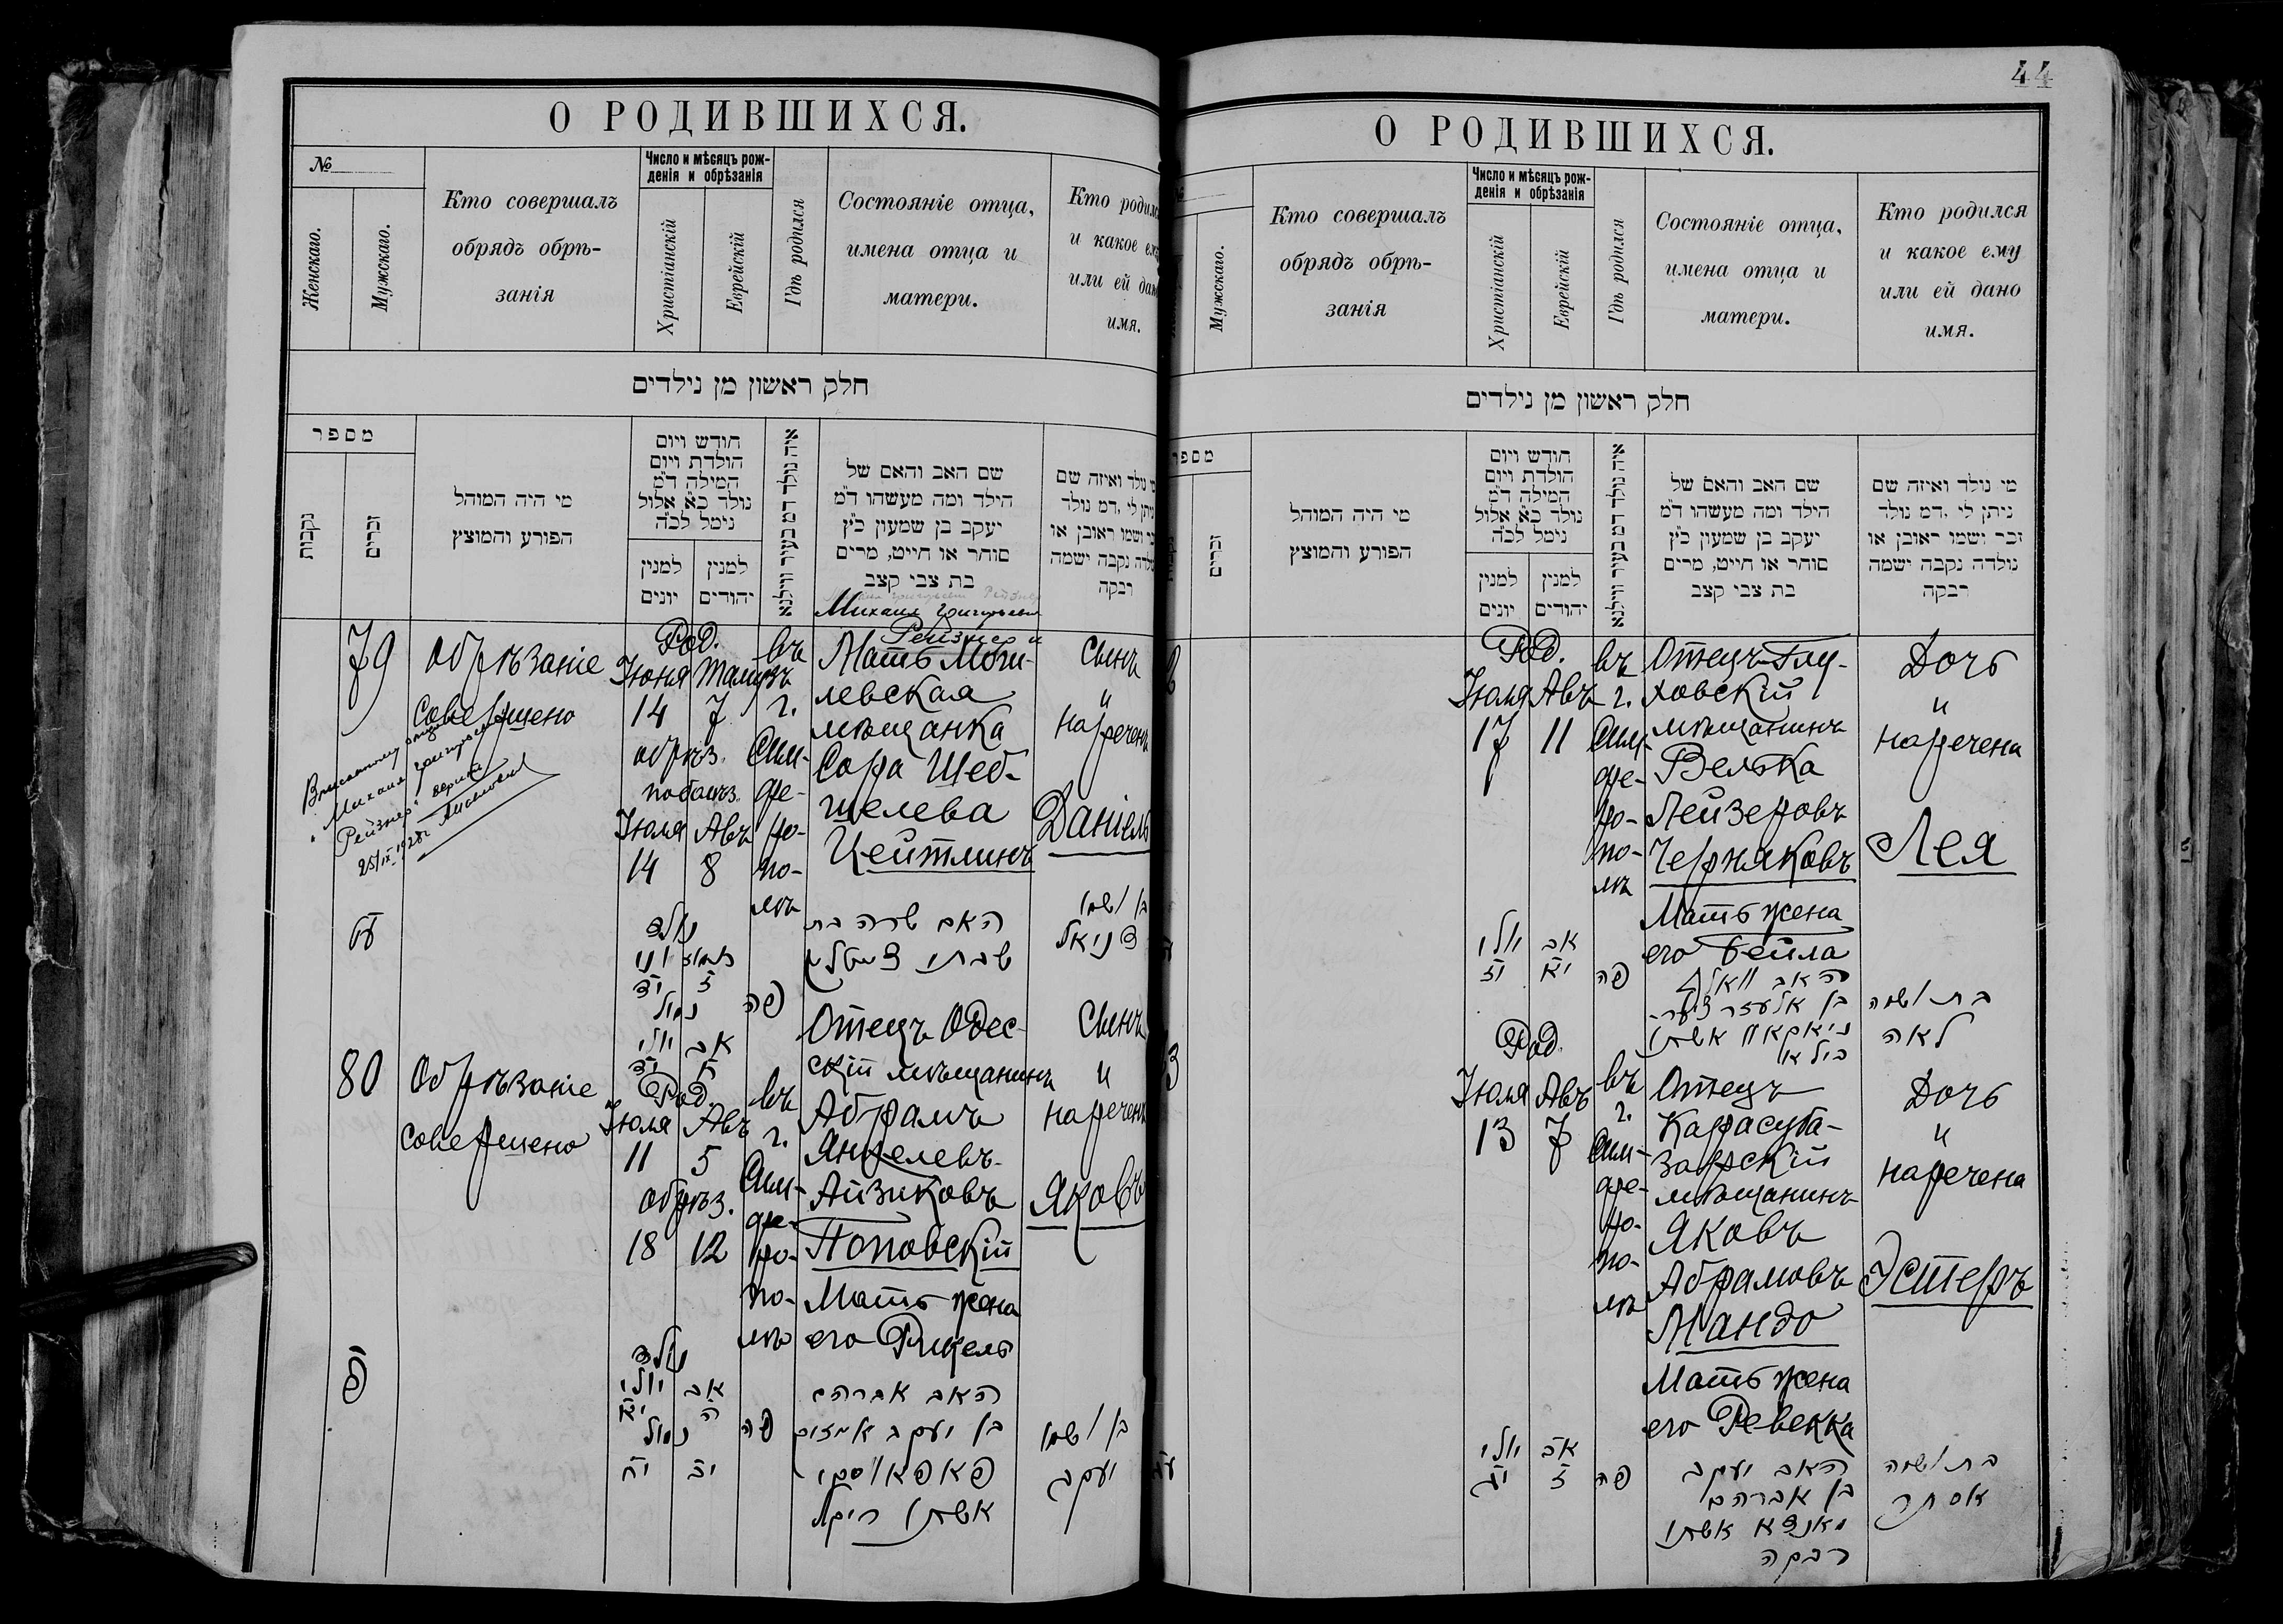 О РОДИВШИХСЯ.
№
Женскаго.
Мужскаго.
Кто совершалъ
обрядъ обрѣ-
занія
Число и мѣсяцъ рож-
денія и обрѣзанія
Христіанскій
Еврейскій
Гдѣ родился
Состояніе отца,
имена отца и
матери.
Кто родил
и какое ем
или ей дан
имя.
חלק ראשון מן נילדים
מספר
נקבות
זכרים
מי היה המוהל
הפורע והמוצץ
חודש ויום
הולדת ויום
המילה ד״מ
נולד כ״א אלול
נימל לכ״ה
למנין
יונים
למנין
יהודים
איה נולד דמ בעיר ווילנא
שם האב והאם של
הילד ומה מעשהו ד״מ
יעקב בן שמעון כ״ץ
סוחר או חייט, מרים
בת צבי קצב
נולד ואיזה שם
ניתן לי .דמ נולד
ושמו ראובן או
נקבה ישמה
רבקה
79
Обрѣзаніе
совершено
Род.
Іюня Тамузъ
14 7
обрѣз.
Іюля Авъ
14 8
въ
г.
Сим-
фе-
ро-
по-
лѣ
Михаил Григорьевич
Рейзнер и
Мать Моги-
левская
мѣщанка
Сора Шеб-
шелева
Цейтлинъ
Сынъ
и
нареченъ
Даніель
Михаил Григорьевич
Рейзнер
עט
נולד
תמוז יוני
ז יד
נמול
אב יולי
ח יד
פה
האב שרה בת
שבתי צייטלין
בן ושמו
דניאל
80
Обрѣзаніе
совершено
Род.
Іюля Авъ
11 5
обрѣз.
18 12
въ
г.
Сим-
фе-
ро-
по-
лѣ
Отецъ Одес-
скій мѣщанинъ
Абрамъ
Янкелевъ-
Айзиковъ
Поповскій
Мать жена
его Рикель
Сынъ
и
нареченъ
Яковъ
פ
נולד
אב יולי
ה יא
נמול
יב יח
פה
האב אברהם
בן יעקב אייזיק
פאפאווסקי
אשתו ריקל
בן ושמו
יעקב
44
О РОДИВШИХСЯ.
Мужскаго.
Кто совершалъ
обрядъ обрѣ-
занія
Число и мѣсяцъ рож-
денія и обрѣзанія
Христіанскій
Еврейскій
Гдѣ родился
Состояніе отца,
имена отца и
матери.
Кто родился
и какое ему
или ей дано
имя.
חלק ראשון מן נילדים
מספר
זכרים
מי היה המוהל
הפורע והמוצץ
חודש ויום
הולדת ויום
המילה ד״מ
נולד כ״א אלול
נימל לכ״ה
למנין
יונים
למנין
יהודים
איה נולד דמ בעיר ווילנא
שם האב והאם של
הילד ומה מעשהו ד״מ
יעקב בן שמעון כ״ץ
סוחר או חייט, מרים
בת צבי קצב
מי נולד ואיזה שם
ניתן לי .דמ נולד
זכר ושמו ראובן או
נולדה נקבה ישמה
רבקה
Род.
Іюля Авъ
17 11
въ
г.
Сим-
фе-
ро-
по-
лѣ
Отецъ Глу-
ховскій
мѣщанинъ
Велька
Лейзеровъ
Черняковъ
Мать жена
его Бейла
Дочь
и
наречена
Лея
אב יולי
יא יז
פה
האב וואלף
בן אלעזר
אשתו
ביילא
בת ושמה
לאה
3
Род.
Іюля Авъ
13 7
въ
г.
Сим-
фе-
ро-
по-
лѣ
Отецъ
Карасуба-
зарскій
мѣщанинъ
Яковъ
Абрамовъ
Мандо
Мать жена
его Ревекка
Дочь
и
наречена
Эстеръ
אב יולי
ז יג
פה
האב יעקב
בן אברהם
מאנדא אשתו
רבקה
בת ושמה
אסתר